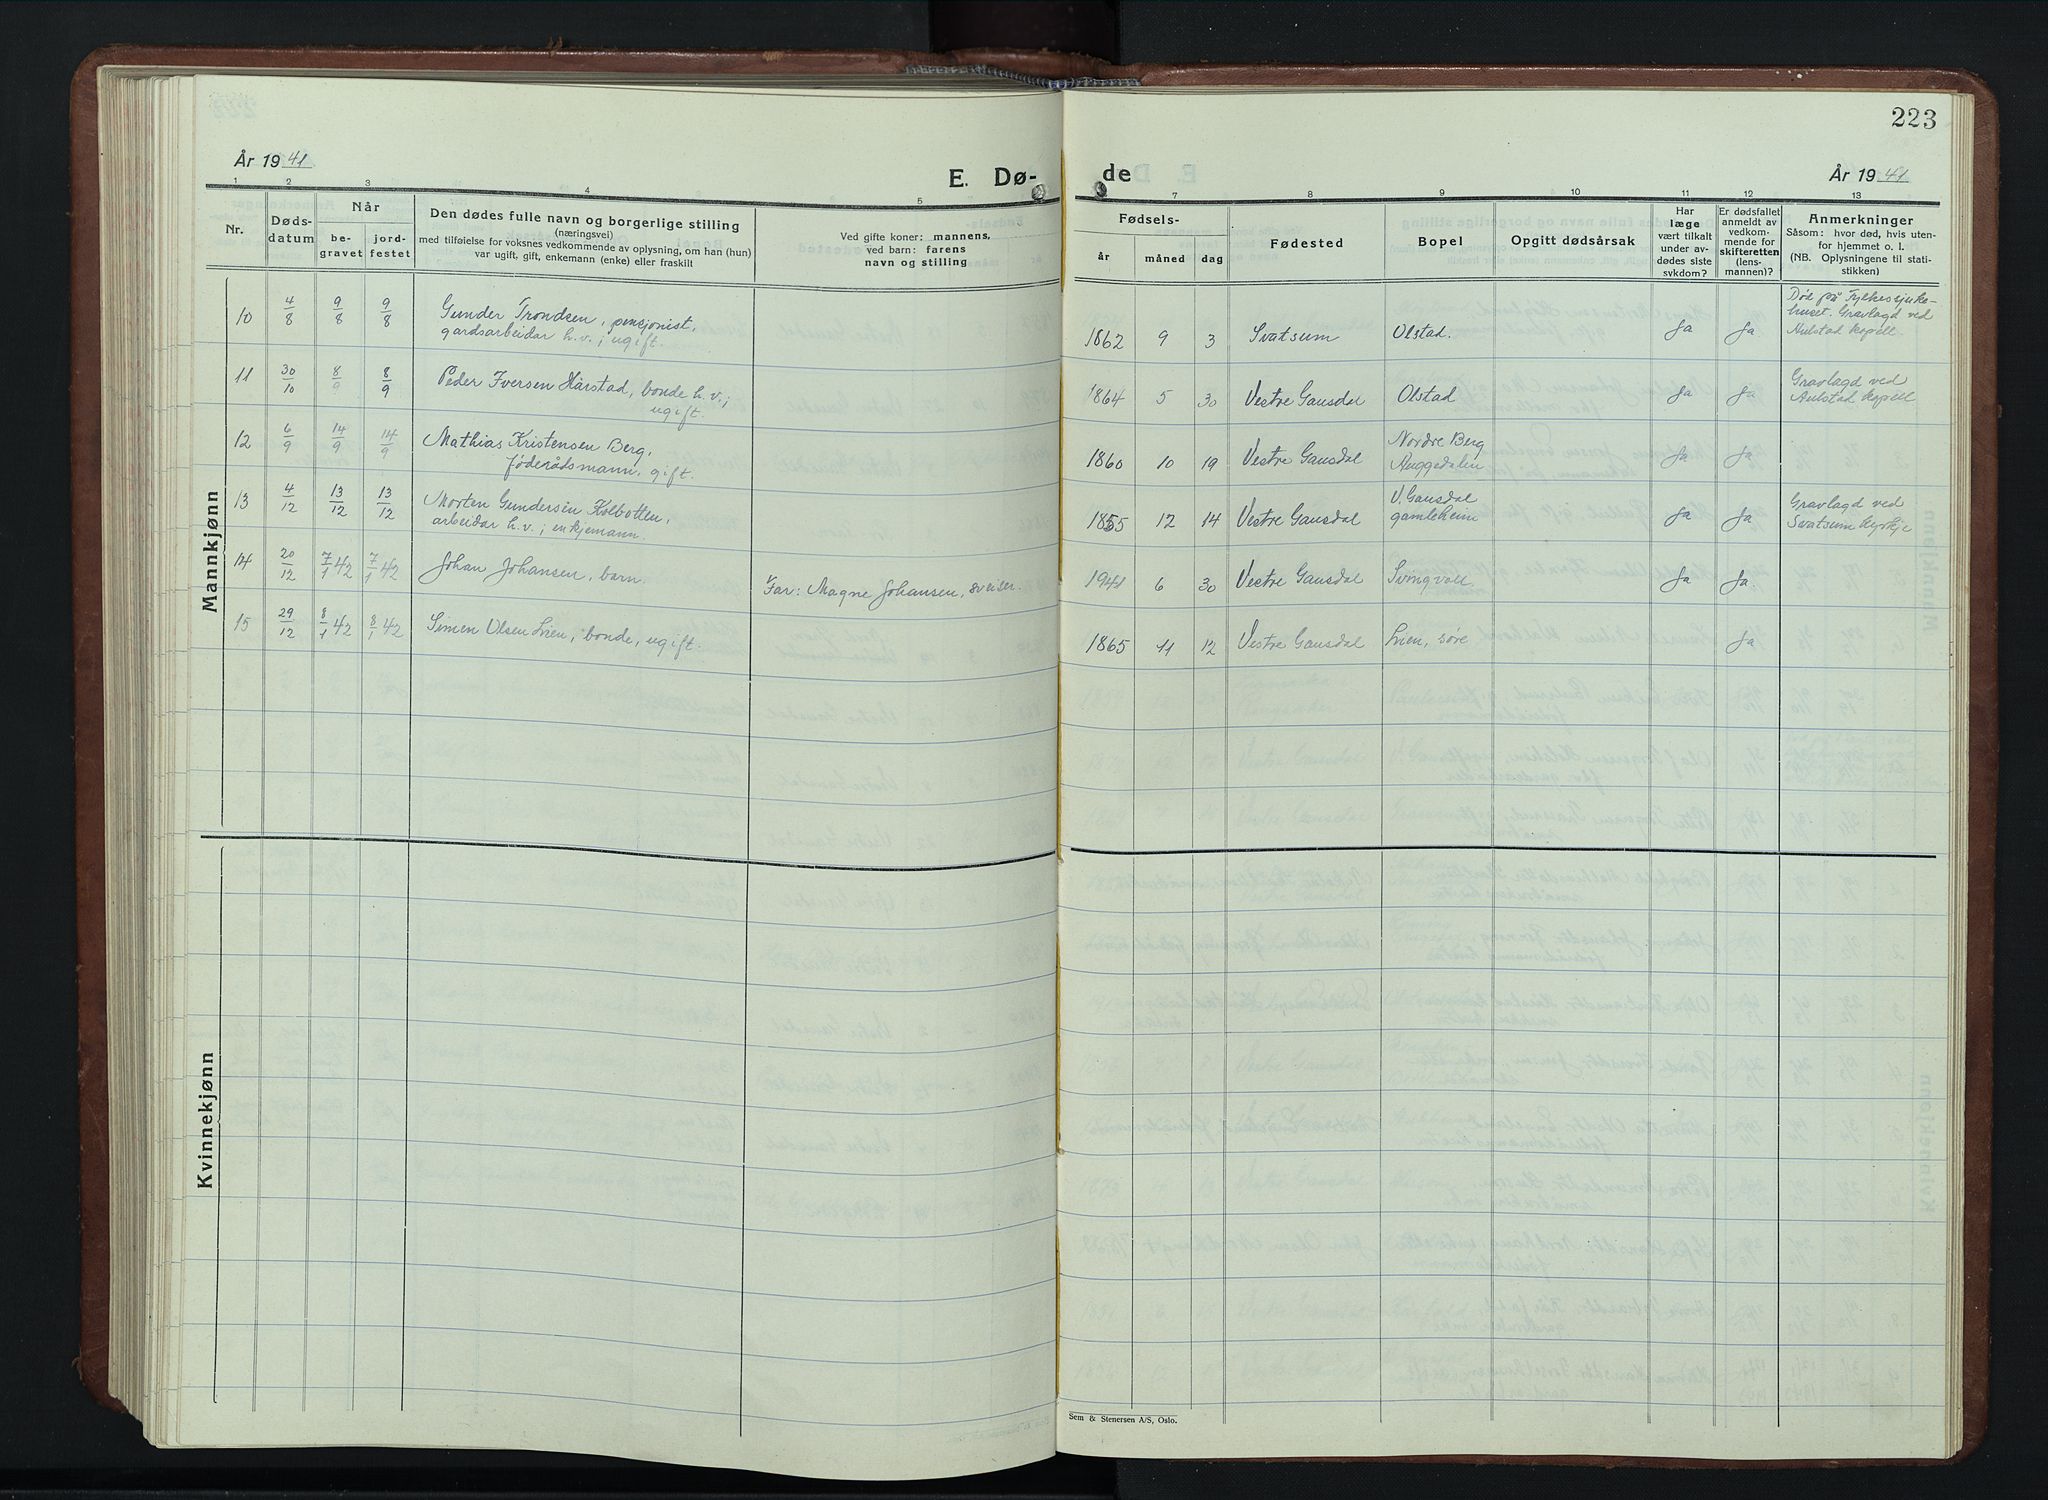 223
År 1941
E. Dø-
de
År 1941
1 2 3 4 5
7 8 9 10 11 12 13
Nr.
Døds-
datum
Når
be-
gravet
jord-
festet
Den dødes fulle navn og borgerlige stilling
(næringsvei)
med tilføielse for voksnes vedkommende av oplysning, om han (hun)
var ugift, gift, enkemann (enke) eller fraskilt
Ved gifte koner: mannens,
ved barn: farens
navn og stilling
Fødsels-
år
måned
dag
Fødested
Bopel
Opgitt dødsårsak
Har
læge
vært tilkalt
under av-
dødes siste
sykdom?
Er dødsfallet
anmeldt av
vedkom-
mende for
skifteretten
(lens-
mannen)?
Anmerkninger
Såsom: hvor død, hvis uten-
for hjemmet o. l.
(NB. Oplysningene til stati-
stikken)
Mannkjønn
10 4/8 9/8 9/8 Gunder Trondsen, pensjonist,
gardsarbeidar h.v.; ugift.
1862 9 3 Svatsum Olstad. Ja Ja
Død på Fylkessjuke-
huset. Gravlagd ved
Aulstad kapell.
11 30/10 8/9 8/9 Peder Iversen Hårstad, bonde h.v.;
ugift.
1864 5 30 Vestre Gausdal Olstad Ja Ja
Gravlagd ved
Aulstad kapell
12 6/9 14/9 14/9 Mathias Kristensen Berg,
føderådsmann, gift.
1860 10 19 Vestre Gausdal Nordre Berg
Auggedalen Ja Ja
13 4/12 13/12 13/12 Morten Gundersen Kolbotten,
arbeidar h.v.; enkjemann.
1855 12 14 Vestre Gausdal V. Gausdal
gamleheim Ja Ja
Gravlagd ved
Svatsum kyrkje
14 20/12 7/1 42 7/1 42 Johan Johansen, barn.
Far: Magne Johansen, sveiser.
1941 6 30 Vestre Gausdal Svingvoll Ja Ja.
15 29/12 8/1 42 8/1 42 Simen Olsen Lien, bonde, ugift.
1865 11 12 Vestre Gausdal Lien, søre Ja
Kvinnekjønn
Sem & Stenersen A/S, Oslo.